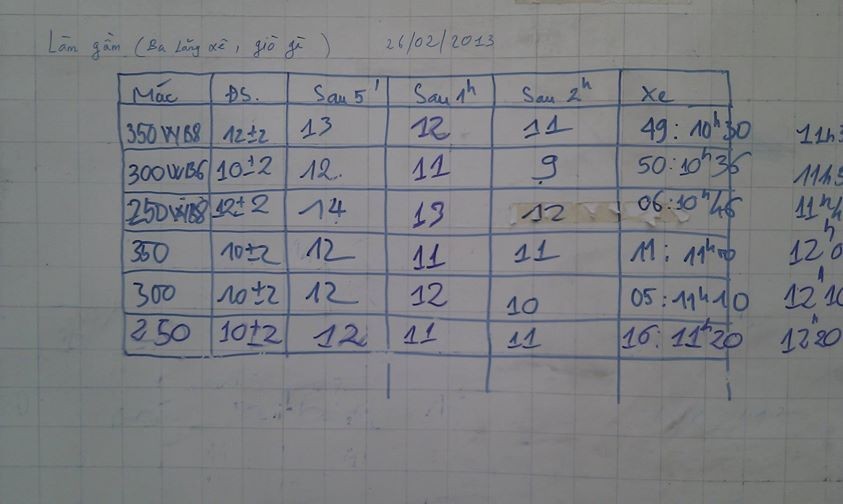 Làm gầm (Ba lăng xê, giò gà) 26/02/2013
Mác ĐS. Sau 5' Sau 1h Sau 2h Xe
350WB8 12±2 13 12 11 49: 10h30
300WB6 10±2 12 11 9 50:10h36
250WB8 12±2 14 13 12 06:10h46
350 10±2 12 11 11 11: 11h00
300 10±2 12 12 10 05:11h10 12h10
250 10±2 12 11 11 16: 11h20 12h20